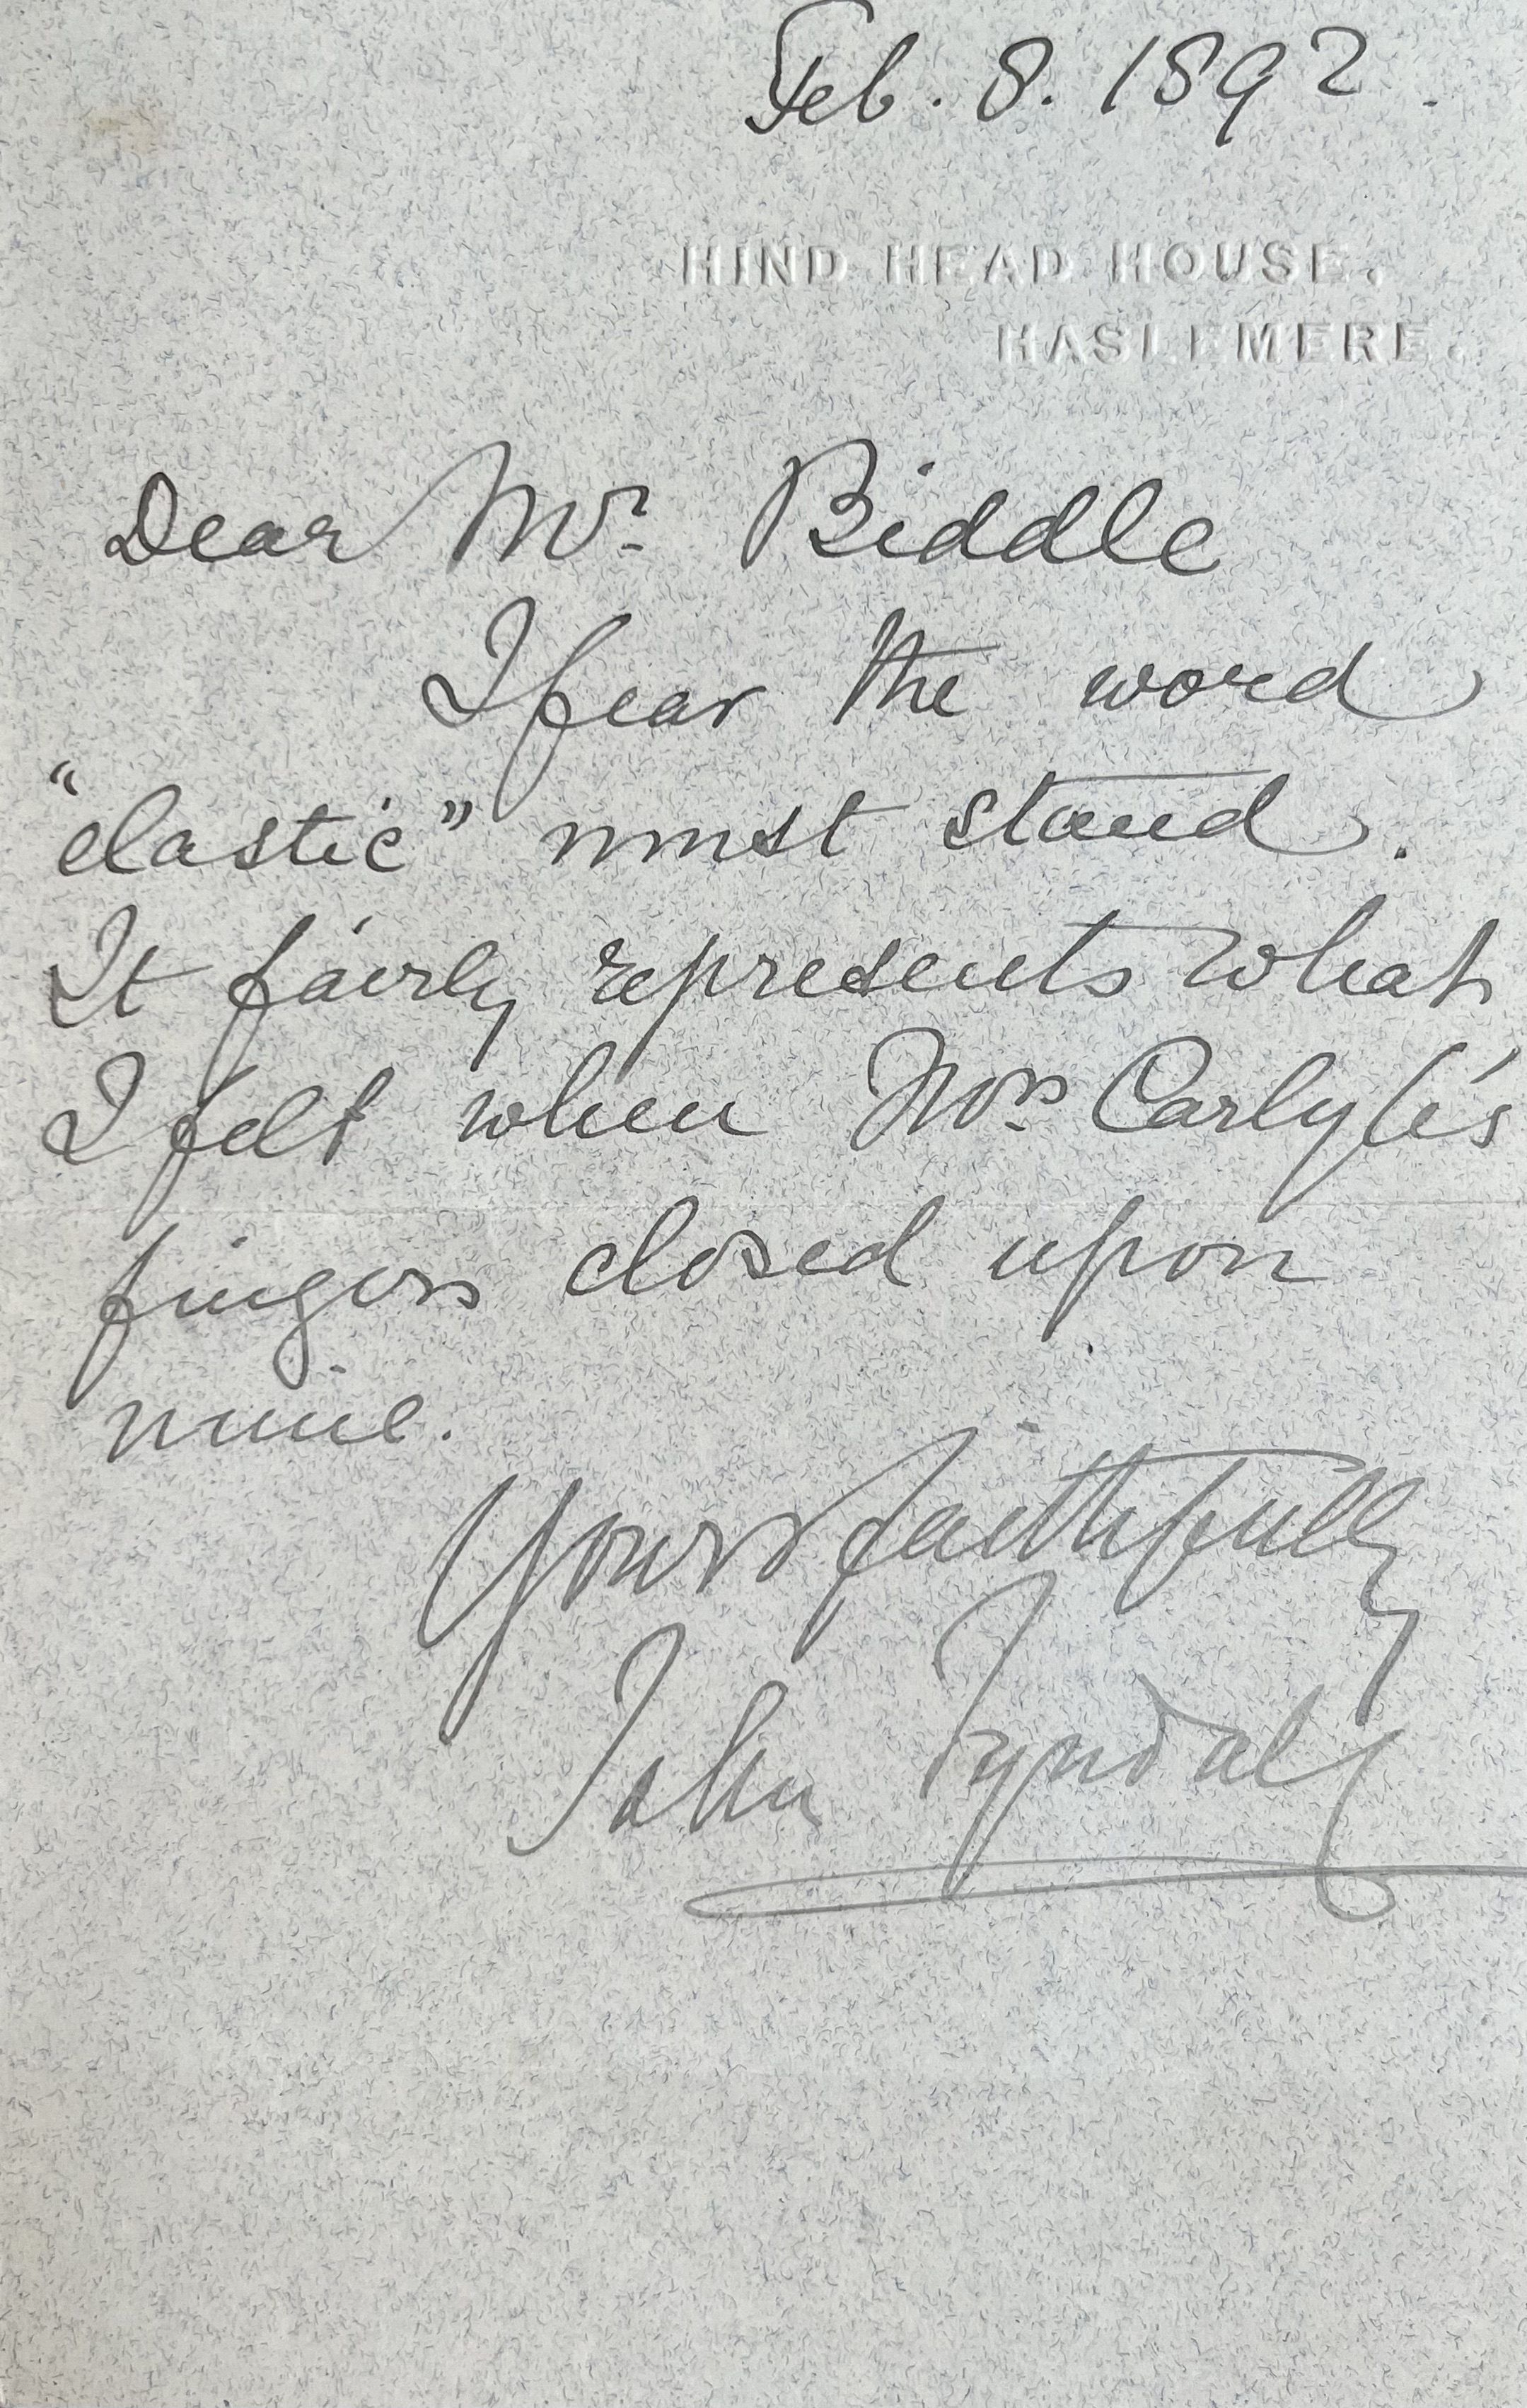 Feb. 8. 1892.
HIND HEAD HOUSE,
HASLEMERE.
Dear Mr. Biddle
I fear the word
"elastic" must stand.
It fairly represents what
I felt when Mrs. Carlyle's
fingers closed upon
mine.
Yours faithfully
John Tyndall